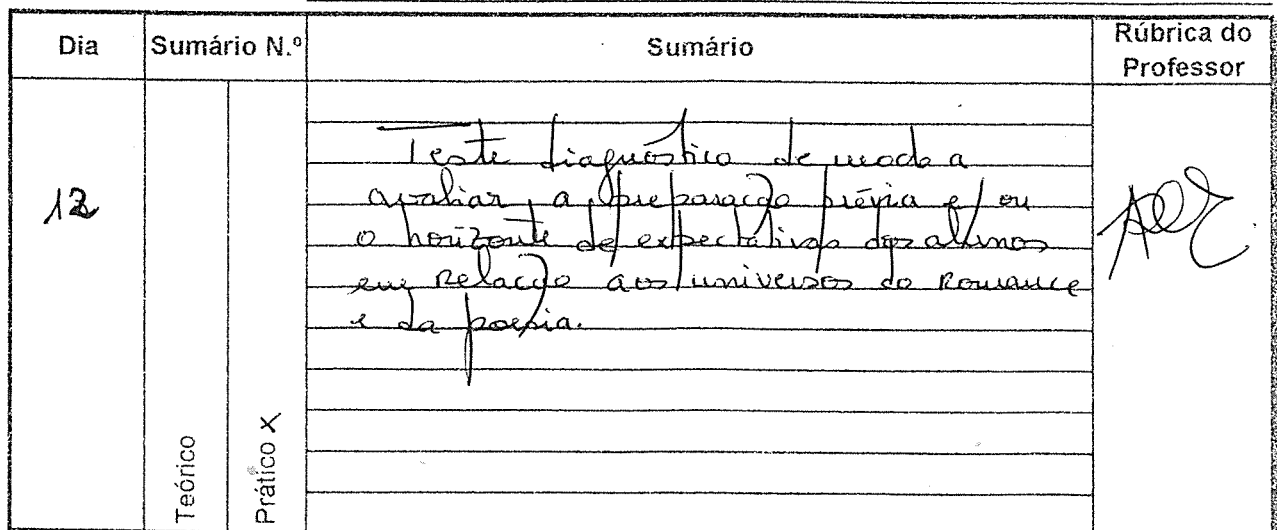 Dia Sumário N.º Sumário Rúbrica do
Professor
Teste diagnóstico de modo a
avaliar a preparação prévia e/ou
12
o horizonte de expectativas dos alunos
em relação aos universos do Romance
e da poesia.
Teórico
Prático X